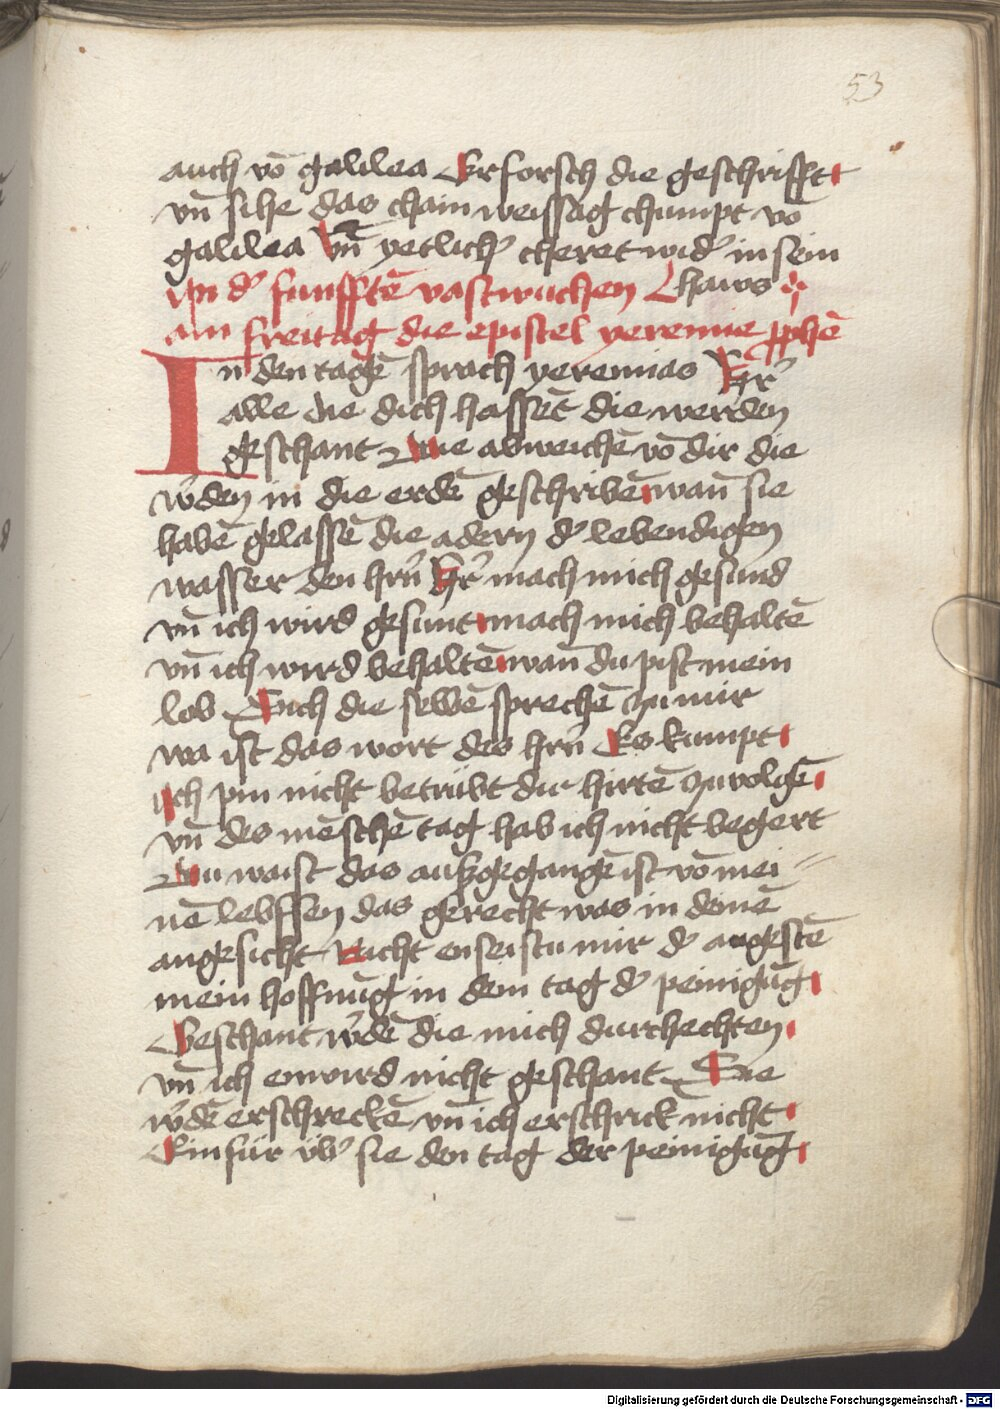 53
auch vō galilea Erforsch die geschrifft
vn̄ sihe das chain weissag chumpt vō
galilea Vn̄ yetlichꝰ cheret widꝰ in sein
In dꝰ funfftē vastwuchen haws
am freitag die epistel yeremie ꝓphē
In den tagē sprach yeremias Hꝰr
alle die dich hassēt die werden
geschant Die abweichē vō dir die
wꝰden in die erdē geschribē wan̄ sie
habē gelassē die adern dꝰ lebendigen
wasser den hrn̄ Hꝰr mach mich gesund
vn̄ ich wird gesunt mach mich behaltē
vn̄ ich wird behaltē wan̄ du pist mein
lob Sich die selbē sprechē zu mir
wa ist das wort des hrn̄ Es kumpt
Ich pin nicht betrübt dir hirtē zu volgē
vn̄ des mēschē tag hab ich nicht begert
Du waist das außgegangē ist vō mei
nē lebssen das gerecht was in deinē
angesicht Nicht enseistu mir dꝰ angstē
mein hoffnūg in dem tag dꝰ peinigūg
Geschant wꝰdē die mich durchechten
vn̄ ich enwird nicht geschant Sie
wꝰdē erschreckē vn̄ ich erschrick nicht
Einfür vbꝰ sie den tag der peinigūg
Digitalisierung gefördert durch die Deutsche Forschungsgemeinschaft - DFG